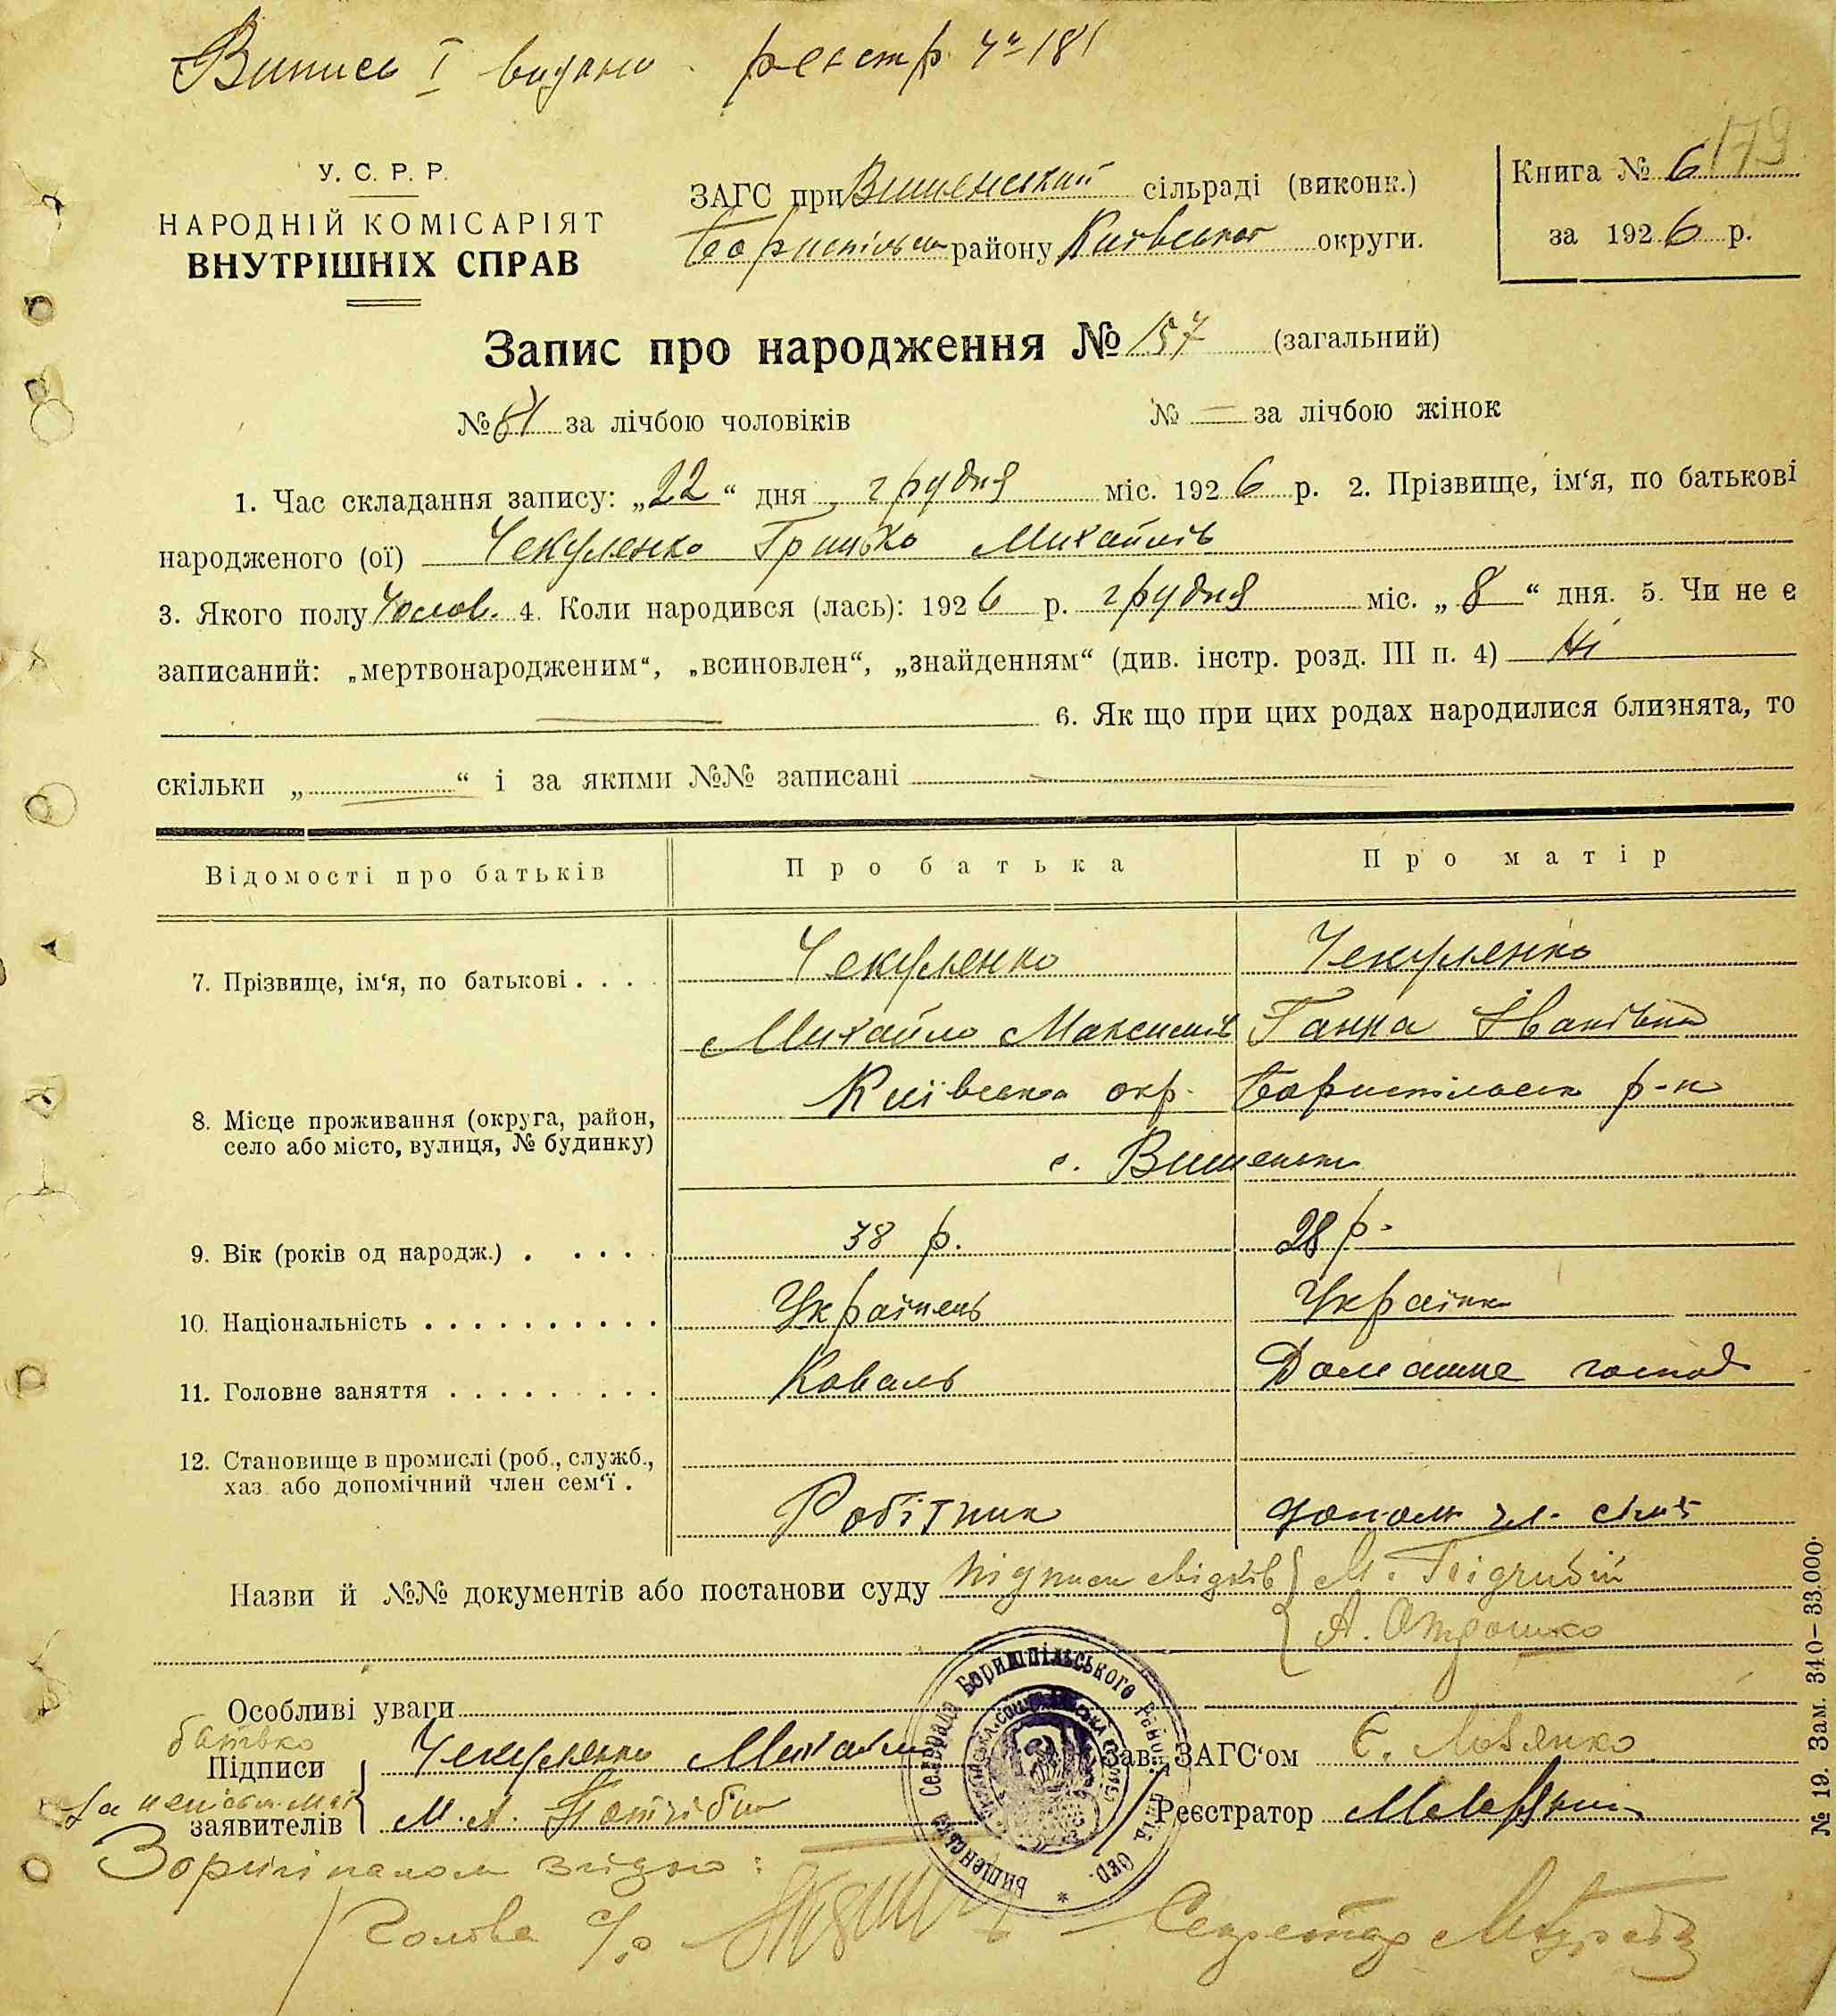 Випись I видано реєстр. № 181
179
У. С. Р. Р.
НАРОДНІЙ КОМІСАРІЯТ
ВНУТРІШНІХ СПРАВ
ЗАГС при Вишенській сільраді (виконк.)
Бориспільськ району Київської округи.
Книга № 6
за 1926 р.
Запис про народження № 157 (загальний)
№ 81 за лічбою чоловіків № — за лічбою жінок
1. Час складання запису: „22“ дня грудня міс. 1926 р. 2. Прізвище, ім‘я, по батькові
народженого (ої) Чекуленко Грицько Михайлів
3. Якого полу Чолов. 4. Коли народився (лась): 1926 р. грудня міс. „8“ дня. 5. Чи не є
записаний: „мертвонародженим“, „всиновлен“, „знайденням“ (див. інстр. розд. III п. 4) Ні
6. Як що при цих родах народилися близнята, то
скільки „ “ і за якими №№ записані
Відомості про батьків Про батька Про матір
7. Прізвище, ім‘я, по батькові . . . . Чекуленко Чекуленко
Михайло Максимів Ганна Іванівна
8. Місце проживання (округа, район, Київська окр. Бориспільськ р-н
село або місто, вулиця, № будинку) с. Вишеньки
9. Вік (років од народж.) . . . . . 38 р. 28 р.
10. Національність . . . . . . . . . . Українець Українка
11. Головне заняття . . . . . . . . . Коваль Домашнє господ
12. Становище в промислі (роб., служб.,
хаз. або допомічний член сем‘ї . Робітник допом чл. сім'ї
Назви й №№ документів або постанови суду підписи свідків М.
А. Отрошко
Особливі уваги
батько
Підписи Чекуленко Михайло Зав. ЗАГС‘ом
заявителів М. А. Реєстратор
Вишенська Сельрада Боришпільського Району Окр.
З оригіналом згідно:
Голова с/р Секретар
№ 19. Зам. 340–33.000.